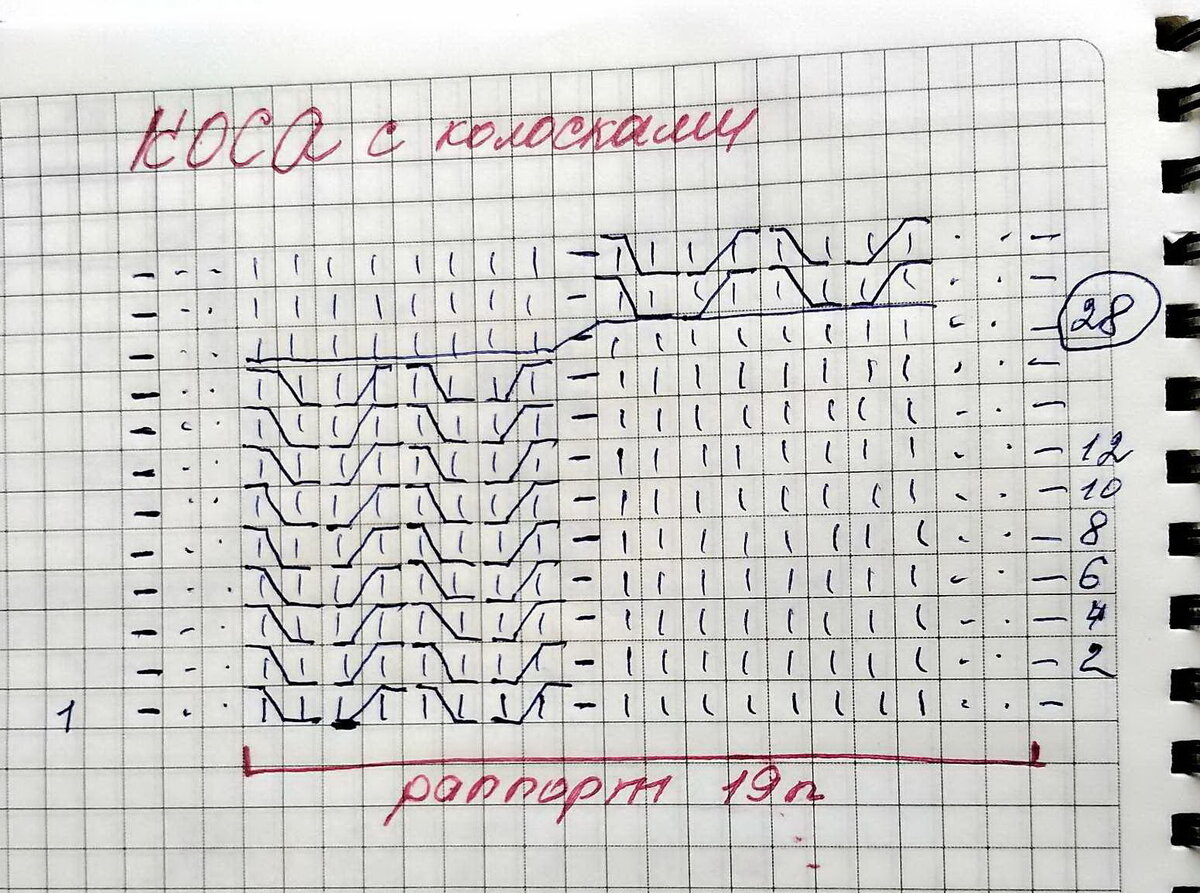 КОСА с колосками
28
12
10
8
6
4
2
1
раппорт 19п